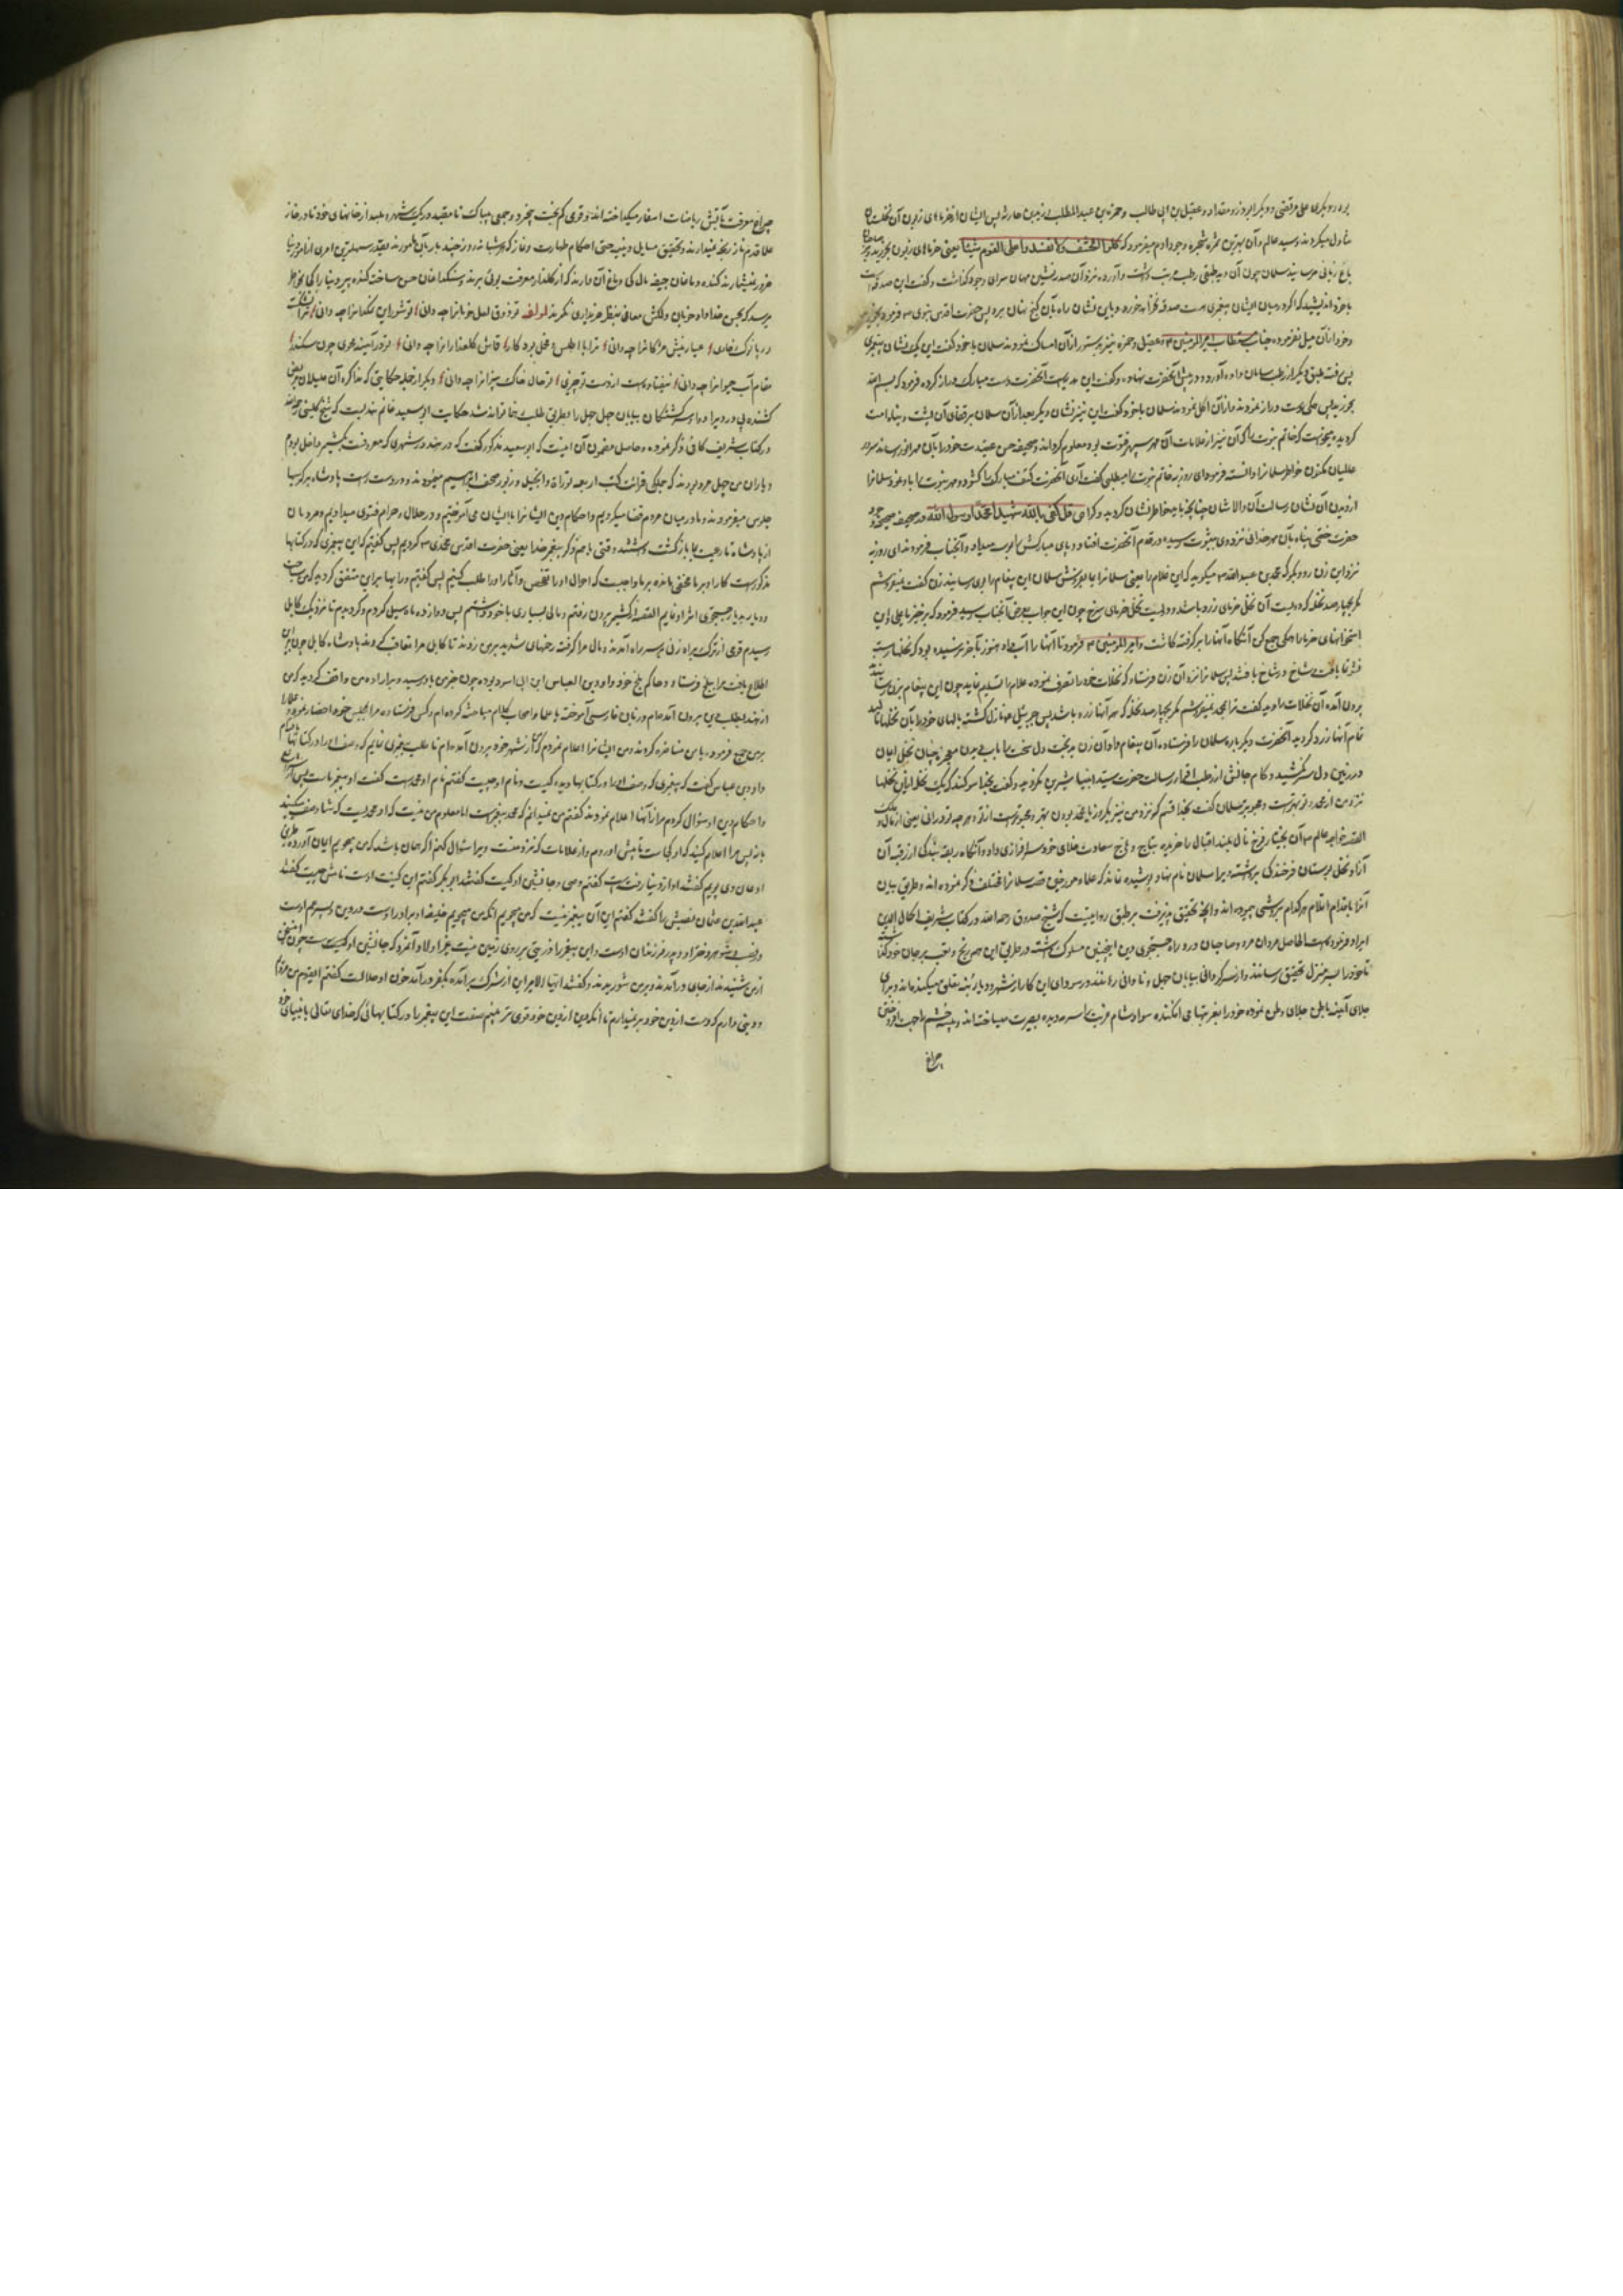 بود و دیگری علی مرتضی و دیگر ابوذر و مقداد و عقیل بن ابی طالب و حمزة بن عبدالمطلب و زید بن حارثه پس ایشان از خرماهای زبون آن نخلستان
تناول میکردند و سید عالم و آن بهترین ثمره شجره وجود آدم میفرمود که کلوا الحشف ولا تفسدوا علی القوم شیئا یعنی خرمای زبون بخورید و بر
باغ زیانی مرسانید سلمان چون آن دید طبقی رطب و آورده نزد آن صدرنشین مهمان سرای وجود گذاشت و گفت این صدقه است
با خود اندیشید که اگر در میان ایشان پیغمبری هست صدقه نخواهد خورد و باین نشان راه بآن گنج نهان برد پس حضرت اقدس نبوی فرمود بخورید
و خود از آن میل نفرموده جناب مستطاب امیرالمؤمنین و عقیل و حمزه نیز بدستور از آن امساک نمودند سلمان با خود گفت این یک نشان پیغمبری
پس رفته طبقی دیگر از رطب آورد و در پیش آنحضرت نهاده و گفت این هدیه است آنحضرت دست مبارک دراز کرده فرمود که بسم الله
بخورید پس همگی دست دراز نمودند و از آن اکل نمودند سلمان با خود گفت این نیز نشان دیگر بعد از آن سلمان بر قفای آن
گردید میخواست که خاتم نبوت را که آن نیز از علامات آن مهر سپهر فتوت بود معلوم گرداند
مکنون خاطر سلمان را دانسته فرمود ای روزبه خاتم نبوت را میطلبی گفت آری آنحضرت کتف مبارک را گشود و مهر نبوت را باو نمود سلمان را
از دیدن آن نشان رسالت آن والا شان خاطر نشان گردید و کرامی قل کفی بالله شهیدا محمدا رسول الله در صحیفه
در قدم آنحضرت افتاد و پای مبارکش را بوسه میداد و آنجناب فرمودند ای روزبه
نزد این زن رو و بگو که محمد بن عبدالله میگوید که این غلام را یعنی سلمان را بما بفروش سلمان این پیغام را بوی رسانید زن گفت نمیفروشم
مگر بچهارصد نخله که دویست آن نخل خرمای زرد باشد و دویست نخل خرمای سرخ چون این جواب بعرض آنجناب رسید فرمود که برخیز یا علی و این
استخوانهای خرما را همگی جمع کن آنگاه آنها را برگرفته کاشت و امیرالمؤمنین فرمود تا آنها را آب داد هنوز بآخر نرسیده بود که نخلها رسته
شاخ در شاخ بافتند پس سلمان را نزد آن زن فرستاد که نخلات خود را تصرف نموده غلام را تسلیم نماید چون این پیغام بزن رسانید
برون آمده آن نخلات را دید گفت ترا بمحمد نمیفروشم مگر بچهارصد نخله که همه آنها زرد باشد پس جبرئیل نازل گشته بالهای خود را بآن نخلها مالید
تمام آنها زرد گردید آنحضرت دیگر باره سلمان را فرستاده آن پیغام داد و آن زن بدبخت دل سخت را بآب دیدن معجز چنان نخل ایمان
در زمین دل سر نکشید و کام جانش از رطب اقرار رسالت حضرت سید انبیا شیرین نگردید و گفت بخدا سوگند که یک نخل از این نخلها
نزد من از محمد و تو بهتر است و محبوبتر سلمان گفت بخدا قسم که نزد من نیز یکروز با محمد بودن بهتر و محبوبتر است از تو و هر چه تو در آنی
القصه خواجه عالم آن بختیار فرخ فال بلند اقبال را خریده بتاج سعادت غلامی خود سرافرازی داد و آنگاه ربقه بندگی از رقبه آن
آزاد نخل بوستان فرخندگی برداشته ویرا سلمان نام نهاد و پوشیده نماند که علما و مورخین قصه سلمان را مختلف ذکر نموده اند و طریق بیان
آنرا باقدام اقلام هر کدام بروشی پیموده اند و آنچه تحقیق پذیرفت بر طبق روایتیست که شیخ صدوق رحمه الله در کتاب شریف اکمال الدین
ایراد فرموده است الحاصل مردان مرد و صاحبان درد راه جستجوی دین اینچنین مسلوک داشته در طریق این همه رنج و تعب بر جان خود گذاشته
تا خود را بسرمنزل تحقیق رسانند و از سرگردانی بیابان جهل و نادانی رهانند و در سودای این کار از شهر و دیار رشته تعلق میکنده اند و برای
جلای آینه باطن جلای وطن نموده خود را بغربتها می افکنده سواد شام غربت را سرمه دیده بصیرت میساخته اند
چراغ
چراغ معرفت بآتش ریاضات اسفار میگداخته اند و قومی کم بخت بیخرد و جمعی بیباک نامقید در یک شهر و بلد از خانهای خود تا در خانه
علما قدم باز رنجه نمیدارند و تحقیق مسایل دینیه حتی احکام طهارت و نماز که هر شبانه روز چند بار بآن مأمورند بقدر سهلترین امری از امور دنیا
ضرور نمیشمارند گنده دماغان جیفه مال کی دماغ آن دارند که از گلعذار معرفت بوئی برند و سنگدلان حسن ساخته گنده پیر دنیا را کی بخاطر
میرسد که بحسن خداداد خوبان دلکش معانی بنظر خریداری نگرند لمؤلفه تو ذوق لعل خوبان را چه دانی تو شور این نمکدان را چه دانی ترا نشکسته
در پا نوک خاری عیار نیش مژگان را چه دانی ترا با اطلس و مخمل بود کار قماش گلعذاران را چه دانی تو در آینه محوی چون سکندر
مقام آب حیوان را چه دانی نیفتاده است از دست تو چیزی تو حال خاک بیزان را چه دانی و دیگر از جمله حکایتی که
گشتگان بیابان جهل را بطریق طلب رهنما تواند شد حکایت ابو سعید غانم هندیست که شیخ کلینی رحمه الله
در کتاب شریف کافی ذکر نموده و حاصل مضمون آن اینست که ابو سعید مذکور گفت که در هند در شهری که معروفست بکشمیر داخل بودم
و یاران من چهل مرد بودند که همگی قرائت کتب اربعه توراة و انجیل و زبور و صحف ابراهیم مینمودند و در دست راست پادشاه بر کرسیها
جلوس میفرمودند و ما در میان مردم قضا میکردیم و احکام دین ایشان را بایشان می آموختیم و در حلال و حرام فتوی میدادیم و مردمان
از پادشاه تا رعیت بما بازگشت داشتند وقتی با هم ذکر پیغمبر خدا یعنی حضرت اقدس محمدی کردیم پس گفتیم که این پیغمبری که در کتابها
مذکور است کار او بر ما مخفی مانده بر ما واجبست که احوال او را تفحص و آثار او را طلب کنیم پس گفتیم و رأیها بر این متفق گردید که من
دیار بدیار بجستجوی اثر او نمایم القصه از کشمیر برون رفتم و مالی بسیاری با خود داشتم پس دوازده ماه سیر کردم و گردیدم تا نزدیک کابل
رسیدم قومی از ترک براه زنی بر سر راه آمدند و مال مرا گرفته زخمهای شدید بر من زدند تا کابل مرا متعاقب و پادشاه کابل چون بر این
اطلاع یافت مرا ببلخ فرستاد و حاکم بلخ خود داود بن العباس ابن ابی اسود بود چون خبر من باو رسید و بر اراده من واقف گردید که من
از هند بطلب دین برون آمده ام و زبان فارسی آموخته با علما و اصحاب کلام مباحثه کرده ام کس فرستاده مرا بمجلس خود احضار نمود و علما را
بر من جمع فرمود و با من مناظره کردند و من ایشان را اعلام نمودم که از شهر خود برون آمده ام تا طلب پیغمبری نمایم که وصف او را در کتابها
داود بن عباس گفت که پیغمبری که وصف او را در کتابها دیده کیست و نام او چیست گفتم نام او محمد است گفت او پیغمبر ماست پس از شرایع
و احکام دین او سئوال کردم مرا از آنها اعلام نمودند گفتم من میدانم که محمد پیغمبر است اما معلوم من نیست که او محمدیست که شما وصف میکنید
یا نه پس مرا اعلام کنید که او کجاست تا پیش او روم و از علامات که نزد منست ویرا سئوال کنم اگر همان باشد که من میجویم ایمان آورده بطریق
گفتند او از دنیا رفته است گفتم وصی و جانشین او کیست گفتند ابوبکر گفتم این کنیت اوست نامش چیست گفتند
عبدالله بن عثمان و نسبش را گفتند گفتم این آن پیغمبر نیست که من میجویم آنکه من میجویم خلیفه او برادر اوست در دین و پسر عم اوست
در نسب و شوهر دختر او و پدر فرزندان اوست و این پیغمبر را ذریتی بر روی زمین نیست بغیر اولاد آنمرد که جانشین اوست چون این سخن
از من شنیدند از جای درآمدند و بر من شوریدند و گفتند ایها الامیر این از شرک برآمده بکفر درآمد خون او حلال است گفتم ای قوم من مردم
و دینی دارم که دست از دین خود بر نمیدارم تا آنکه دین ازین خود قوی تر نبینم صفت این پیغمبر را در کتابهائی که خدای تعالی بانبیای خود